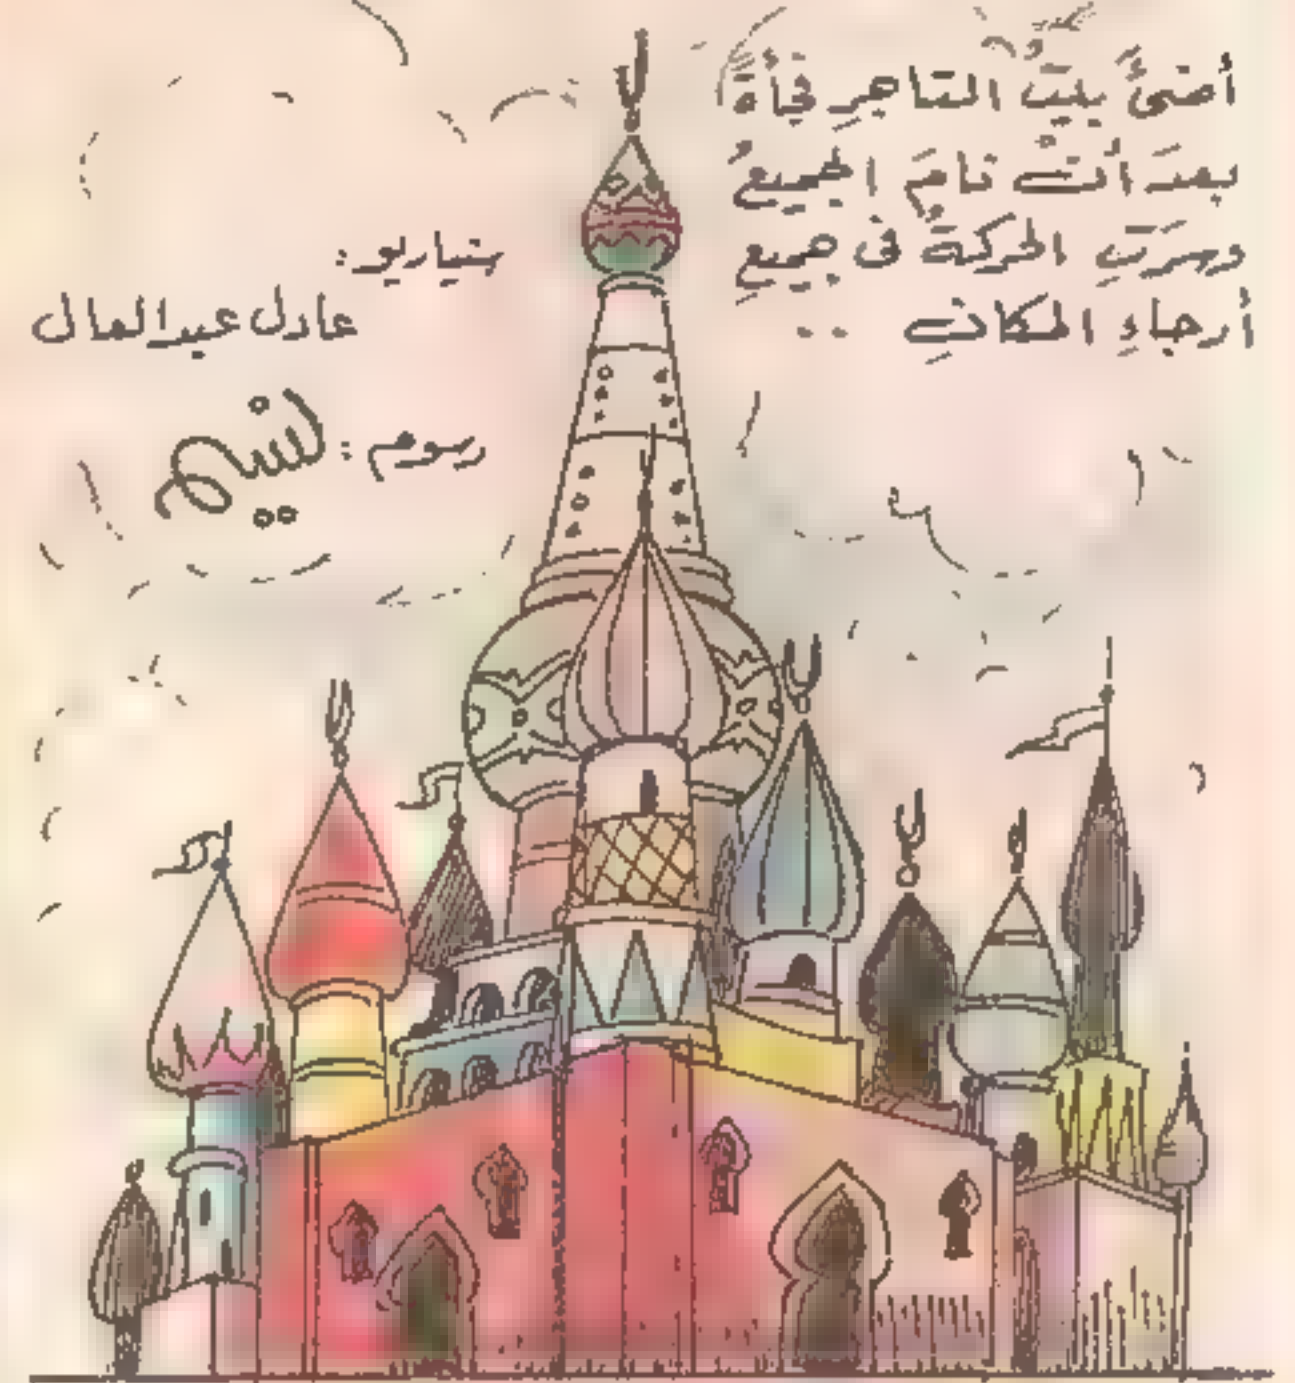 أُضئَ بيتُ التاجرِ فجأةً
بعدَ أنْ نامَ الجميعُ
وسَرَتِ الحركةُ فى جميعِ
أرجاءِ المكانِ ..
سيناريو:
عادل عبدالعال
رسوم: